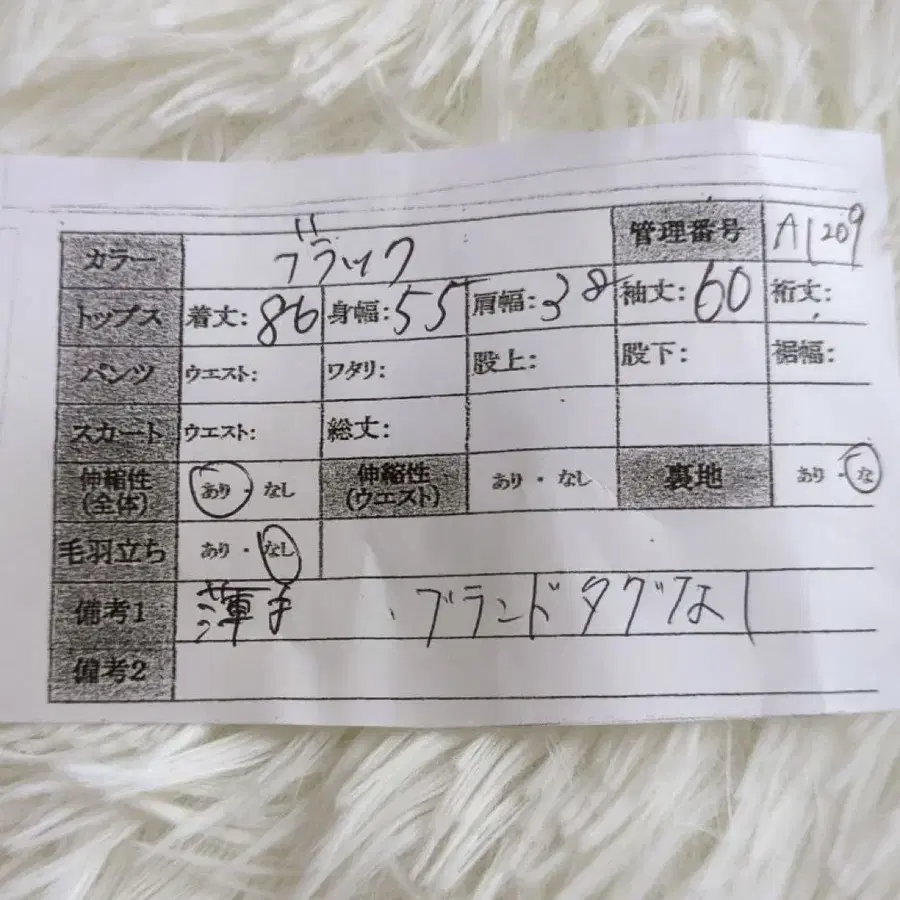 カラー ブラック 管理番号 A1209
トップス 着丈: 86 身幅: 55 肩幅: 38 袖丈: 60 裄丈:
パンツ ウエスト: ワタリ: 股上: 股下: 裾幅:
スカート ウエスト: 総丈:
伸縮性 (全体) あり・なし 伸縮性 (ウエスト) あり・なし 裏地 あり・な
毛羽立ち あり・なし
備考1 薄手 ブランドタグなし
備考2